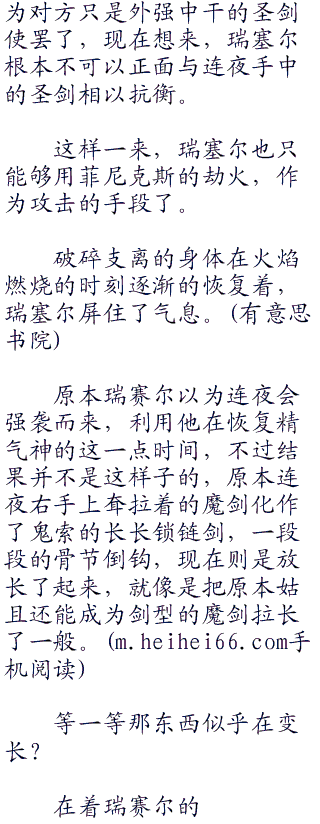 为对方只是外强中干的圣剑
使罢了，现在想来，瑞塞尔
根本不可以正面与连夜手中
的圣剑相以抗衡。
这样一来，瑞塞尔也只
能够用菲尼克斯的劫火，作
为攻击的手段了。
破碎支离的身体在火焰
燃烧的时刻逐渐的恢复着，
瑞塞尔屏住了气息。(有意思
书院)
原本瑞赛尔以为连夜会
强袭而来，利用他在恢复精
气神的这一点时间，不过结
果并不是这样子的，原本连
夜右手上耷拉着的魔剑化作
了鬼索的长长锁链剑，一段
段的骨节倒钩，现在则是放
长了起来，就像是把原本姑
且还能成为剑型的魔剑拉长
了一般。(m.heihei66.com手
机阅读)
等一等那东西似乎在变
长？
在着瑞赛尔的